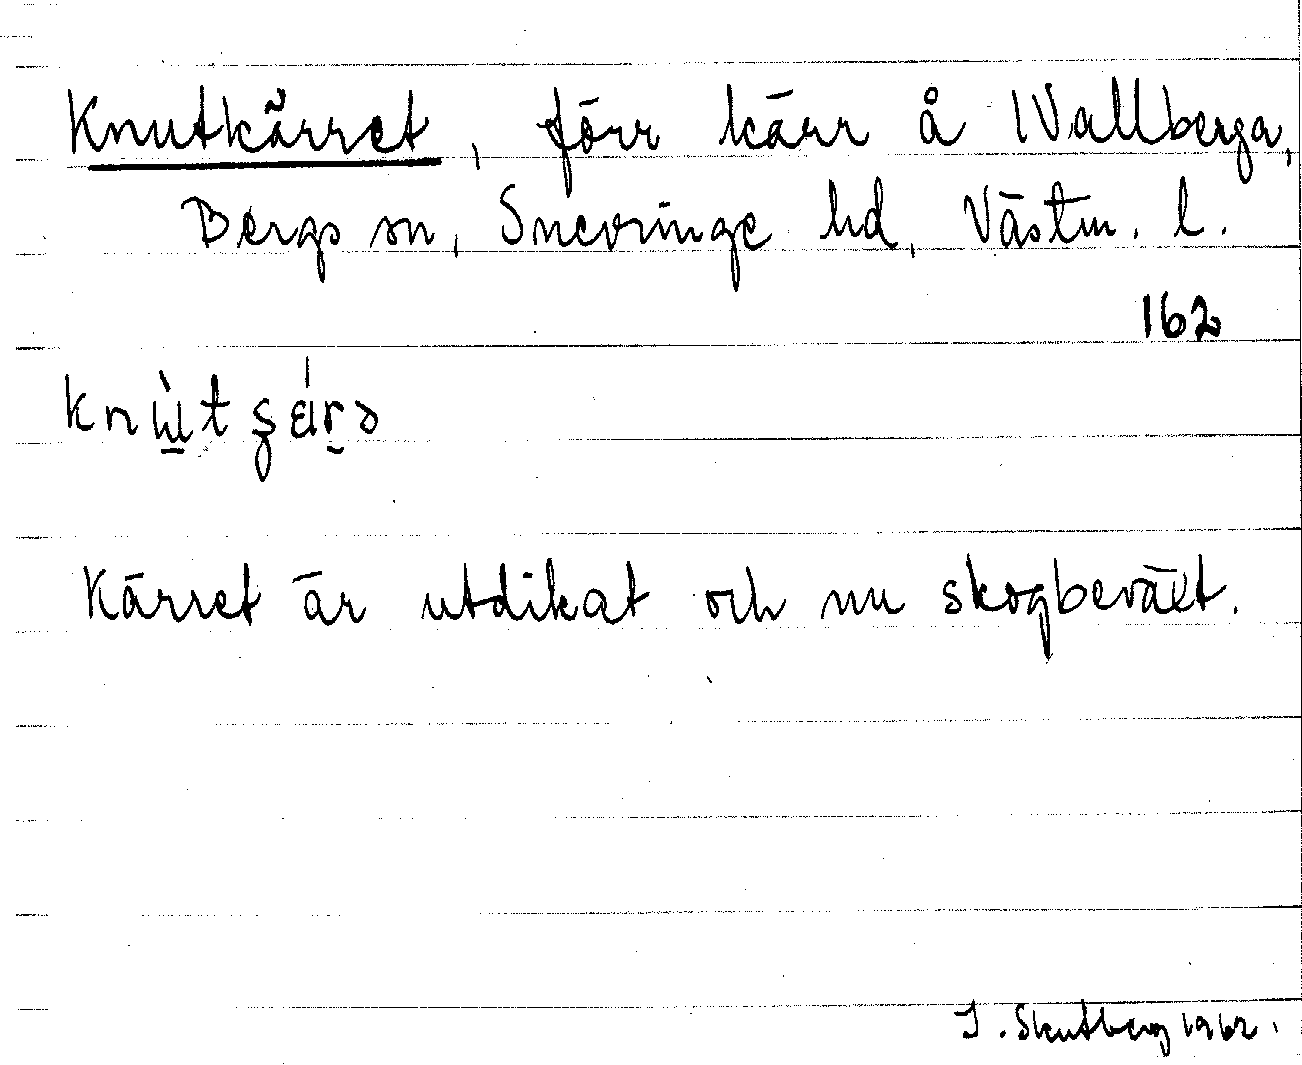 Knutkärret, förr kärr å Wallberga,
Bergs sn, Snevringe hd, Västm. l.
162
Kärret är utdikat och nu skogbeväxt.
I. Skutberg 1962.